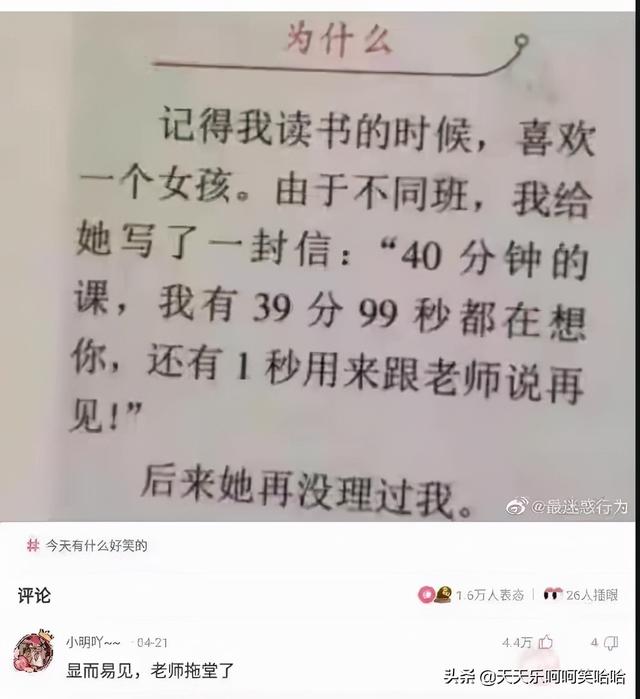 为什么
记得我读书的时候，喜欢
一个女孩。由于不同班，我给
她写了一封信：“40 分钟的
课，我有 39 分 99 秒都在想
你，还有 1 秒用来跟老师说再
见！”
后来她再没理过我。
@最迷惑行为
# 今天有什么好笑的
评论
1.6万人表态
26人插眼
小明吖~~ 04-21
4.4万
4
显而易见，老师拖堂了
头条 @天天乐呵呵笑哈哈